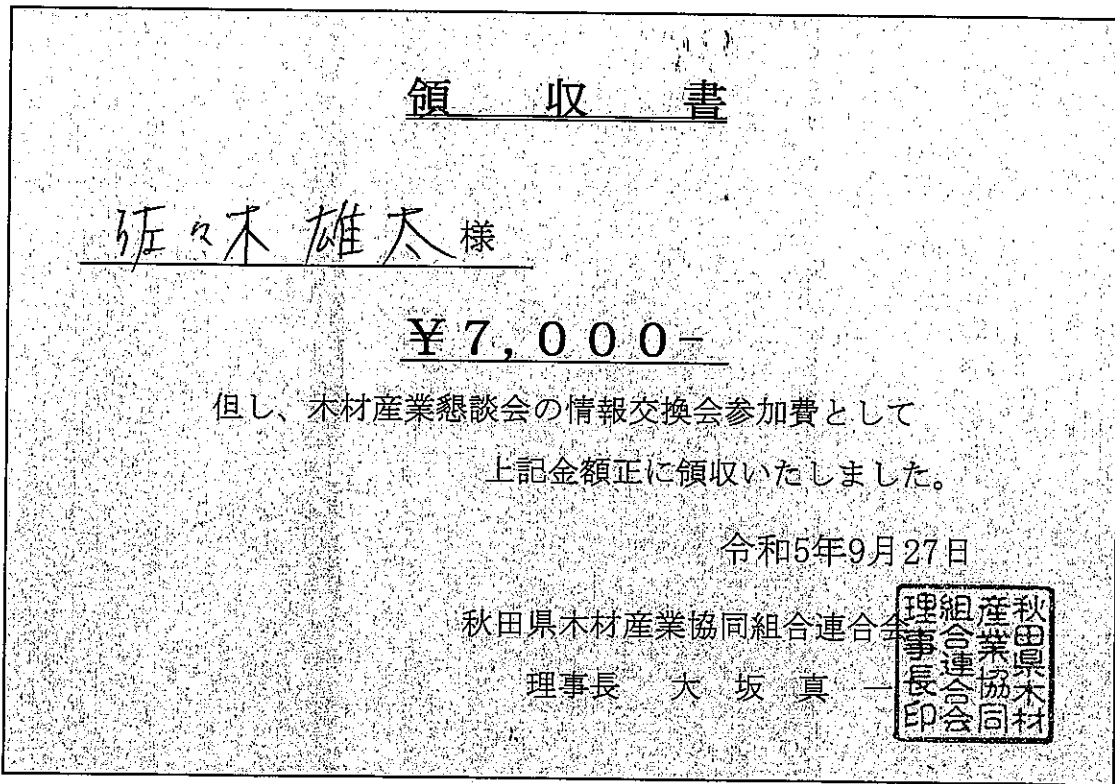 領収書
佐々木 雄太様
¥7,000-
但し、木材産業懇談会の情報交換会参加費として
上記金額正に領収いたしました。
令和5年9月27日
秋田県木材産業協同組合連合会
理事長 大坂真一
秋田県木材
産業協同
組合連合会
理事長印